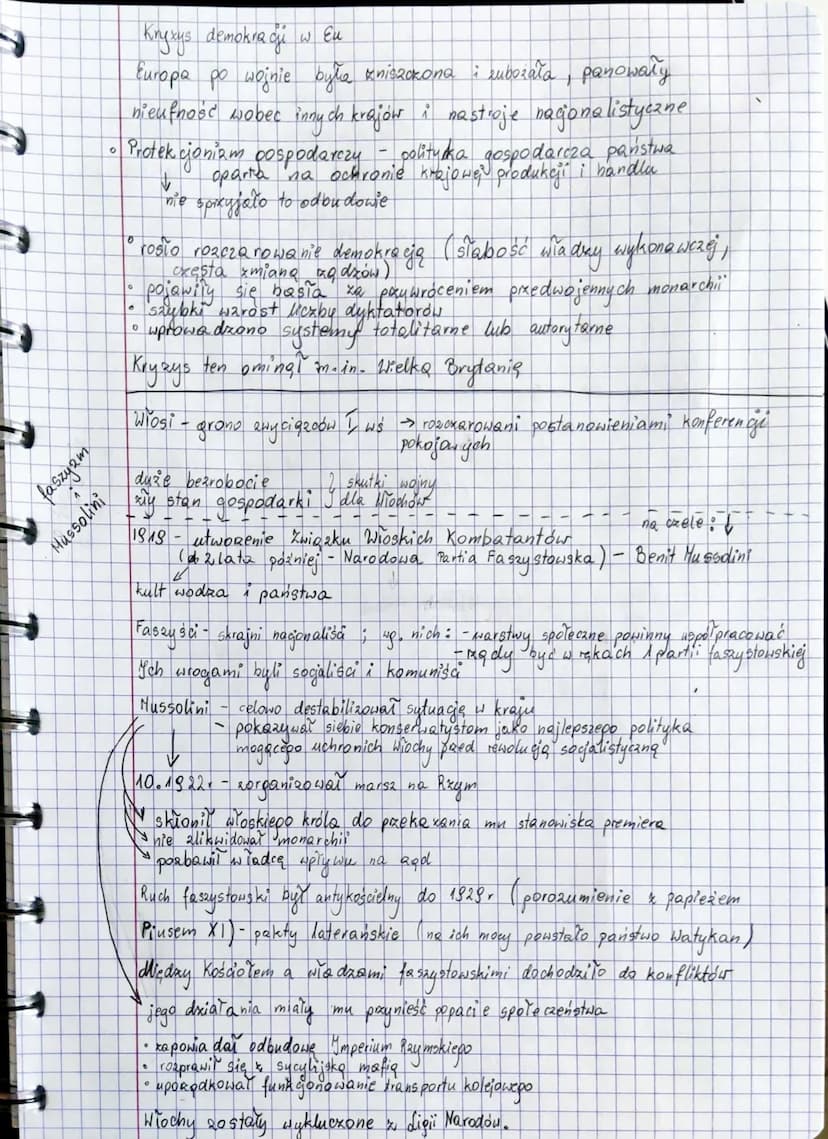 Kryzys demokracji w Eu
Europa po wojnie była zniszczona i zubożała, panowały
nieufność wobec innych krajów i nastroje nacjonalistyczne
• Protekcjonizm gospodarczy - polityka gospodarcza państwa
oparta na ochronie krajowej produkcji i handlu
↓
nie sprzyjało to odbudowie
• rosło rozczarowanie demokracją (słabość władzy wykonawczej,
częsta zmiana rządów)
• pojawiły się hasła za przywróceniem przedwojennych monarchii
• szybki wzrost liczby dyktatorów
• wprowadzono systemy totalitarne lub autorytarne
Kryzys ten ominął m.in. Wielką Brytanię
Włosi - grono zwycięzców I wś → rozczarowani postanowieniami konferencji
pokojowych
faszyzm
i
Mussolini
duże bezrobocie } skutki wojny
zły stan gospodarki } dla Włochów
na czele: ↓
1919 - utworzenie Związku Włoskich Kombatantów
(2 lata później - Narodowa Partia Faszystowska) - Benit Mussolini
kult wodza i państwa
Faszyści - skrajni nacjonaliści; wg. nich: - warstwy społeczne powinny współpracować
- rządy być w rękach 1 partii faszystowskiej
Ich wrogami byli socjaliści i komuniści
Mussolini - celowo destabilizował sytuację w kraju
- pokazywał siebie konserwatystom jako najlepszego polityka
mogącego uchronich Włochy przed rewolucją socjalistyczną
10.1922r - zorganizował marsz na Rzym
skłonił włoskiego króla do przekazania mu stanowiska premiera
nie zlikwidował monarchii
pozbawił władcę wpływu na rząd
Ruch faszystowski był antykościelny do 1929r (porozumienie z papieżem
Piusem XI) - pakty laterańskie (na ich mocy powstało państwo Watykan)
Między Kościołem a władzami faszystowskimi dochodziło do konfliktów
jego działania miały mu przynieść poparcie społeczeństwa
• zapowiadał odbudowę Imperium Rzymskiego
• rozprawił się z sycylijską mafią
• uporządkował funkcjonowanie transportu kolejowego
Włochy zostały wykluczone z Ligii Narodów.